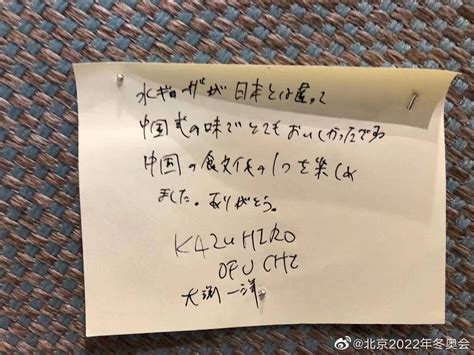 水ギョーザが日本とは違って
中国式の味でとてもおいしかったですね
中国の食文化の1つを楽しめ
ました。ありがとう。
KAZUHIRO
OFUCHI
大渕一洋
@北京2022年冬奥会